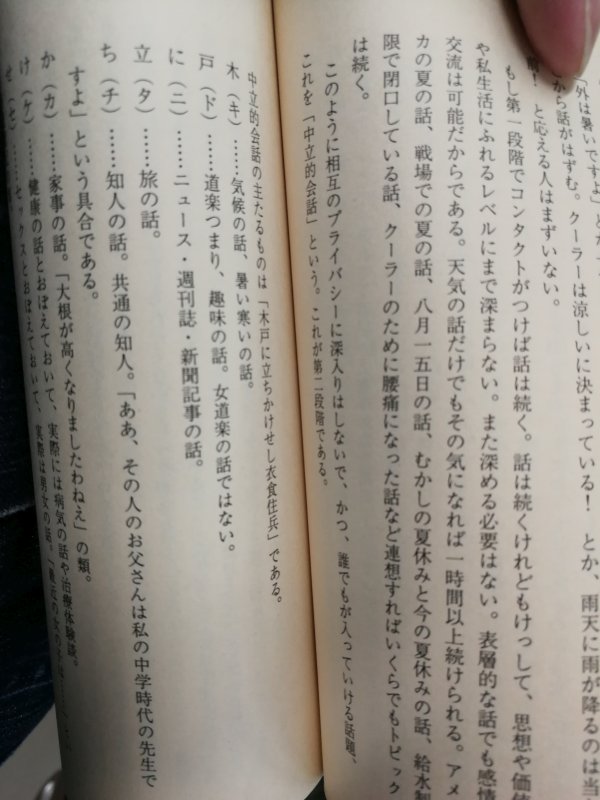 「外は暑いですよ」とか
から話がはずむ。クーラーは涼しいに決まっている！　とか、雨天に雨が降るのは当
！　と応える人はまずいない。
もし第一段階でコンタクトがつけば話は続く。話は続くけれどもけっして、思想や価値
や私生活にふれるレベルにまで深まらない。また深める必要はない。表層的な話でも感情
交流は可能だからである。天気の話だけでもその気になれば一時間以上続けられる。アメ
カの夏の話、戦場での夏の話、八月一五日の話、むかしの夏休みと今の夏休みの話、給水制
限で閉口している話、クーラーのために腰痛になった話など連想すればいくらでもトピック
は続く。
このように相互のプライバシーに深入りはしないで、かつ、誰でもが入っていける話題、
これを「中立的会話」という。これが第二段階である。
中立的会話の主たるものは「木戸に立ちかけせし衣食住兵」である。
木（キ）……気候の話、暑い寒いの話。
戸（ド）……道楽つまり、趣味の話。女道楽の話ではない。
に（ニ）……ニュース・週刊誌・新聞記事の話。
立（タ）……旅の話。
ち（チ）……知人の話。共通の知人。「ああ、その人のお父さんは私の中学時代の先生で
すよ」という具合である。
か（カ）……家事の話。「大根が高くなりましたわねえ」の類。
け（ケ）……健康の話とおぼえておいて、実際には病気の話や治療体験談。
せ（セ）……セックスとおぼえておいて、実際は男女の話。「最近の女の子は